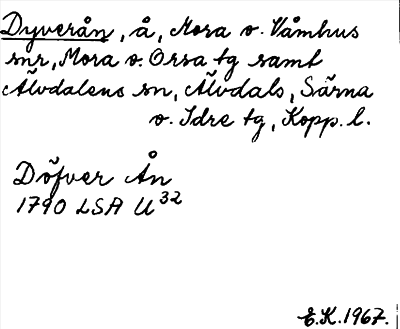 Dyverån, å, Mora o. Våmhus
snr, Mora o. Orsa tg samt
Älvdalens sn, Älvdals, Särna
o. Idre tg, Kopp. l.
Döfver Ån
1790 LSA U 32
E.K. 1967.